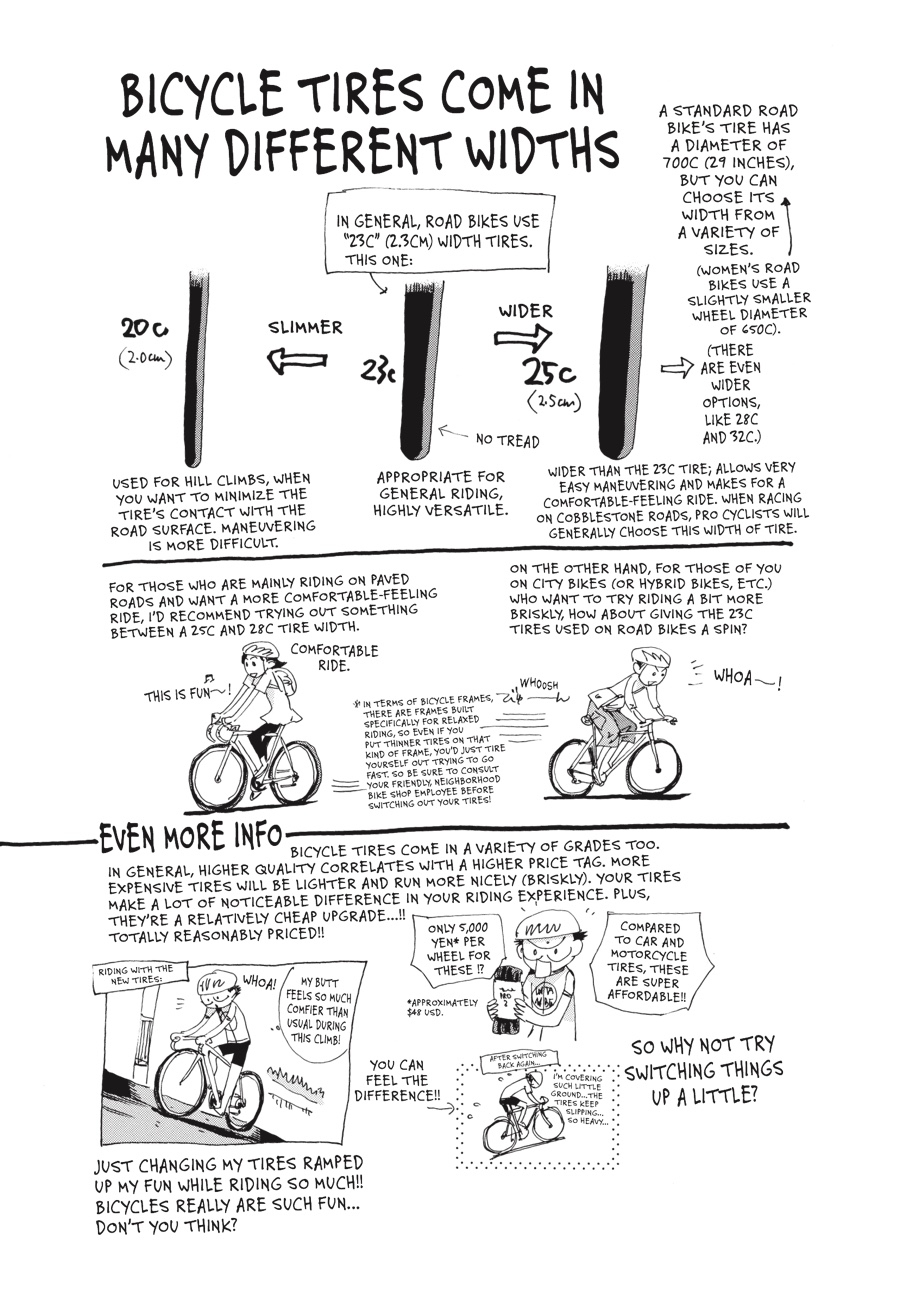 BICYCLE TIRES COME IN
MANY DIFFERENT WIDTHS
A STANDARD ROAD
BIKE'S TIRE HAS
A DIAMETER OF
700C (29 INCHES),
BUT YOU CAN
CHOOSE ITS
WIDTH FROM
A VARIETY OF
SIZES.
(WOMEN'S ROAD
BIKES USE A
SLIGHTLY SMALLER
WHEEL DIAMETER
OF 650C).
IN GENERAL, ROAD BIKES USE
"23C" (2.3CM) WIDTH TIRES.
THIS ONE:
20C
(2.0cm)
SLIMMER
23c
WIDER
25C
(2.5cm)
(THERE
ARE EVEN
WIDER
OPTIONS,
LIKE 28C
AND 32C.)
NO TREAD
USED FOR HILL CLIMBS, WHEN
YOU WANT TO MINIMIZE THE
TIRE'S CONTACT WITH THE
ROAD SURFACE. MANEUVERING
IS MORE DIFFICULT.
APPROPRIATE FOR
GENERAL RIDING,
HIGHLY VERSATILE.
WIDER THAN THE 23C TIRE; ALLOWS VERY
EASY MANEUVERING AND MAKES FOR A
COMFORTABLE-FEELING RIDE. WHEN RACING
ON COBBLESTONE ROADS, PRO CYCLISTS WILL
GENERALLY CHOOSE THIS WIDTH OF TIRE.
FOR THOSE WHO ARE MAINLY RIDING ON PAVED
ROADS AND WANT A MORE COMFORTABLE-FEELING
RIDE, I'D RECOMMEND TRYING OUT SOMETHING
BETWEEN A 25C AND 28C TIRE WIDTH.
COMFORTABLE
RIDE.
THIS IS FUN~!
ON THE OTHER HAND, FOR THOSE OF YOU
ON CITY BIKES (OR HYBRID BIKES, ETC.)
WHO WANT TO TRY RIDING A BIT MORE
BRISKLY, HOW ABOUT GIVING THE 23C
TIRES USED ON ROAD BIKES A SPIN?
WHOOSH
WHOA~!
※ IN TERMS OF BICYCLE FRAMES,
THERE ARE FRAMES BUILT
SPECIFICALLY FOR RELAXED
RIDING, SO EVEN IF YOU
PUT THINNER TIRES ON THAT
KIND OF FRAME, YOU'D JUST TIRE
YOURSELF OUT TRYING TO GO
FAST. SO BE SURE TO CONSULT
YOUR FRIENDLY, NEIGHBORHOOD
BIKE SHOP EMPLOYEE BEFORE
SWITCHING OUT YOUR TIRES!
EVEN MORE INFO
BICYCLE TIRES COME IN A VARIETY OF GRADES TOO.
IN GENERAL, HIGHER QUALITY CORRELATES WITH A HIGHER PRICE TAG. MORE
EXPENSIVE TIRES WILL BE LIGHTER AND RUN MORE NICELY (BRISKLY). YOUR TIRES
MAKE A LOT OF NOTICEABLE DIFFERENCE IN YOUR RIDING EXPERIENCE. PLUS,
THEY'RE A RELATIVELY CHEAP UPGRADE...!!
TOTALLY REASONABLY PRICED!!
ONLY 5,000
YEN* PER
WHEEL FOR
THESE !?
*APPROXIMATELY
$48 USD.
PRO
2
COMPARED
TO CAR AND
MOTORCYCLE
TIRES, THESE
ARE SUPER
AFFORDABLE!!
RIDING WITH THE
NEW TIRES:
WHOA!
MY BUTT
FEELS SO MUCH
COMFIER THAN
USUAL DURING
THIS CLIMB!
YOU CAN
FEEL THE
DIFFERENCE!!
AFTER SWITCHING
BACK AGAIN...
I'M COVERING
SUCH LITTLE
GROUND...THE
TIRES KEEP
SLIPPING...
SO HEAVY...
SO WHY NOT TRY
SWITCHING THINGS
UP A LITTLE?
JUST CHANGING MY TIRES RAMPED
UP MY FUN WHILE RIDING SO MUCH!!
BICYCLES REALLY ARE SUCH FUN...
DON'T YOU THINK?